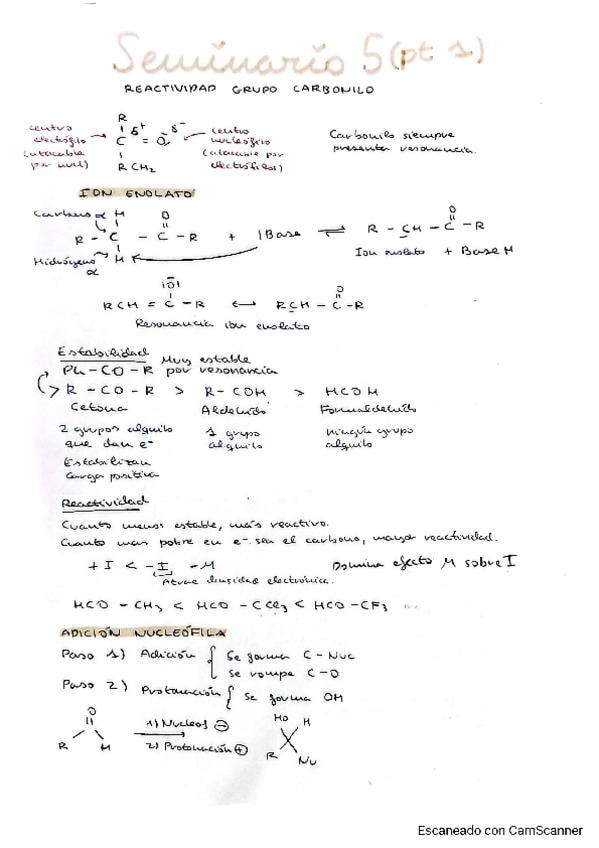 Seminario 5 (pt 1)
REACTIVIDAD GRUPO CARBONILO
centro electrófilo (atacable por nucl)
R
C = O
δ+ δ-
R CH2
centro nucleófilo (atacante por electrófilos)
Carbonilo siempre
presenta resonancia.
ION ENOLATO
Carbono α H O O
R - C - C - R + |Base ⇌ R - CH - C - R
Hidrógeno α H Ion enolato + Base H
|O| O
RCH = C - R ↔ RCH - C - R
Resonancia ion enolato
Estabilidad Muy estable
Ph - CO - R por resonancia
R - CO - R > R - COH > HCOH
Cetona Aldehído Formaldehído
2 grupos alquilo 1 grupo ningún grupo
que dan e- alquilo alquilo
Estabilizan
carga positiva
Reactividad
Cuanto menos estable, más reactivo.
Cuanto mas pobre en e- sea el carbono, mayor reactividad.
+I < -I -M Domina efecto M sobre I
Atrae densidad electrónica.
HCO - CH3 < HCO - CCl3 < HCO - CF3 ...
ADICIÓN NUCLEÓFILA
Paso 1) Adición { Se forma C - Nuc
Se rompe C - O
Paso 2) Protonación { Se forma OH
O HO H
R H 1) Nucleof ⊖
2) Protonación ⊕ R Nu
Escaneado con CamScanner